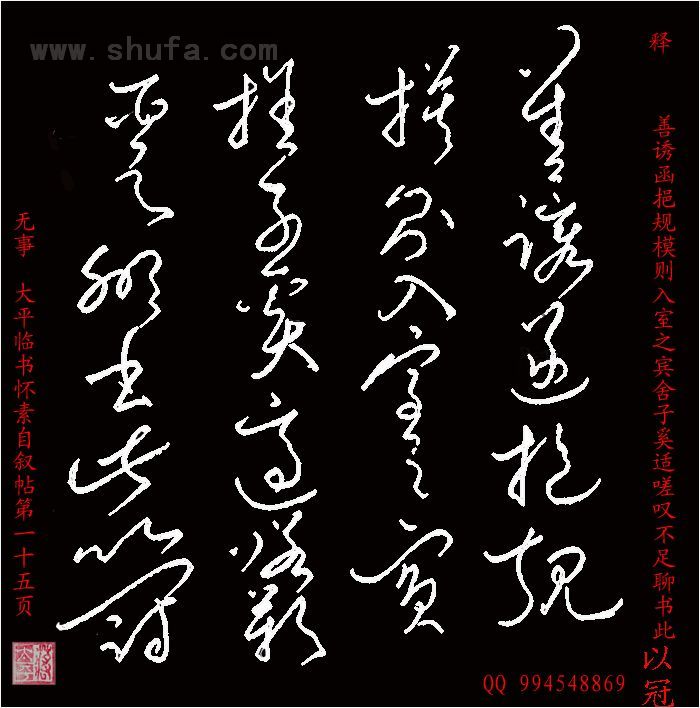 www.shufa.com
释 善诱函挹规模则入室之宾舍子奚适嗟叹不足聊书此以冠
善誘函挹規
模則入室之賓
捨子奚適嗟歎
不足聊書此以冠
无事 大平临书怀素自叙帖第一十五页
QQ 994548869